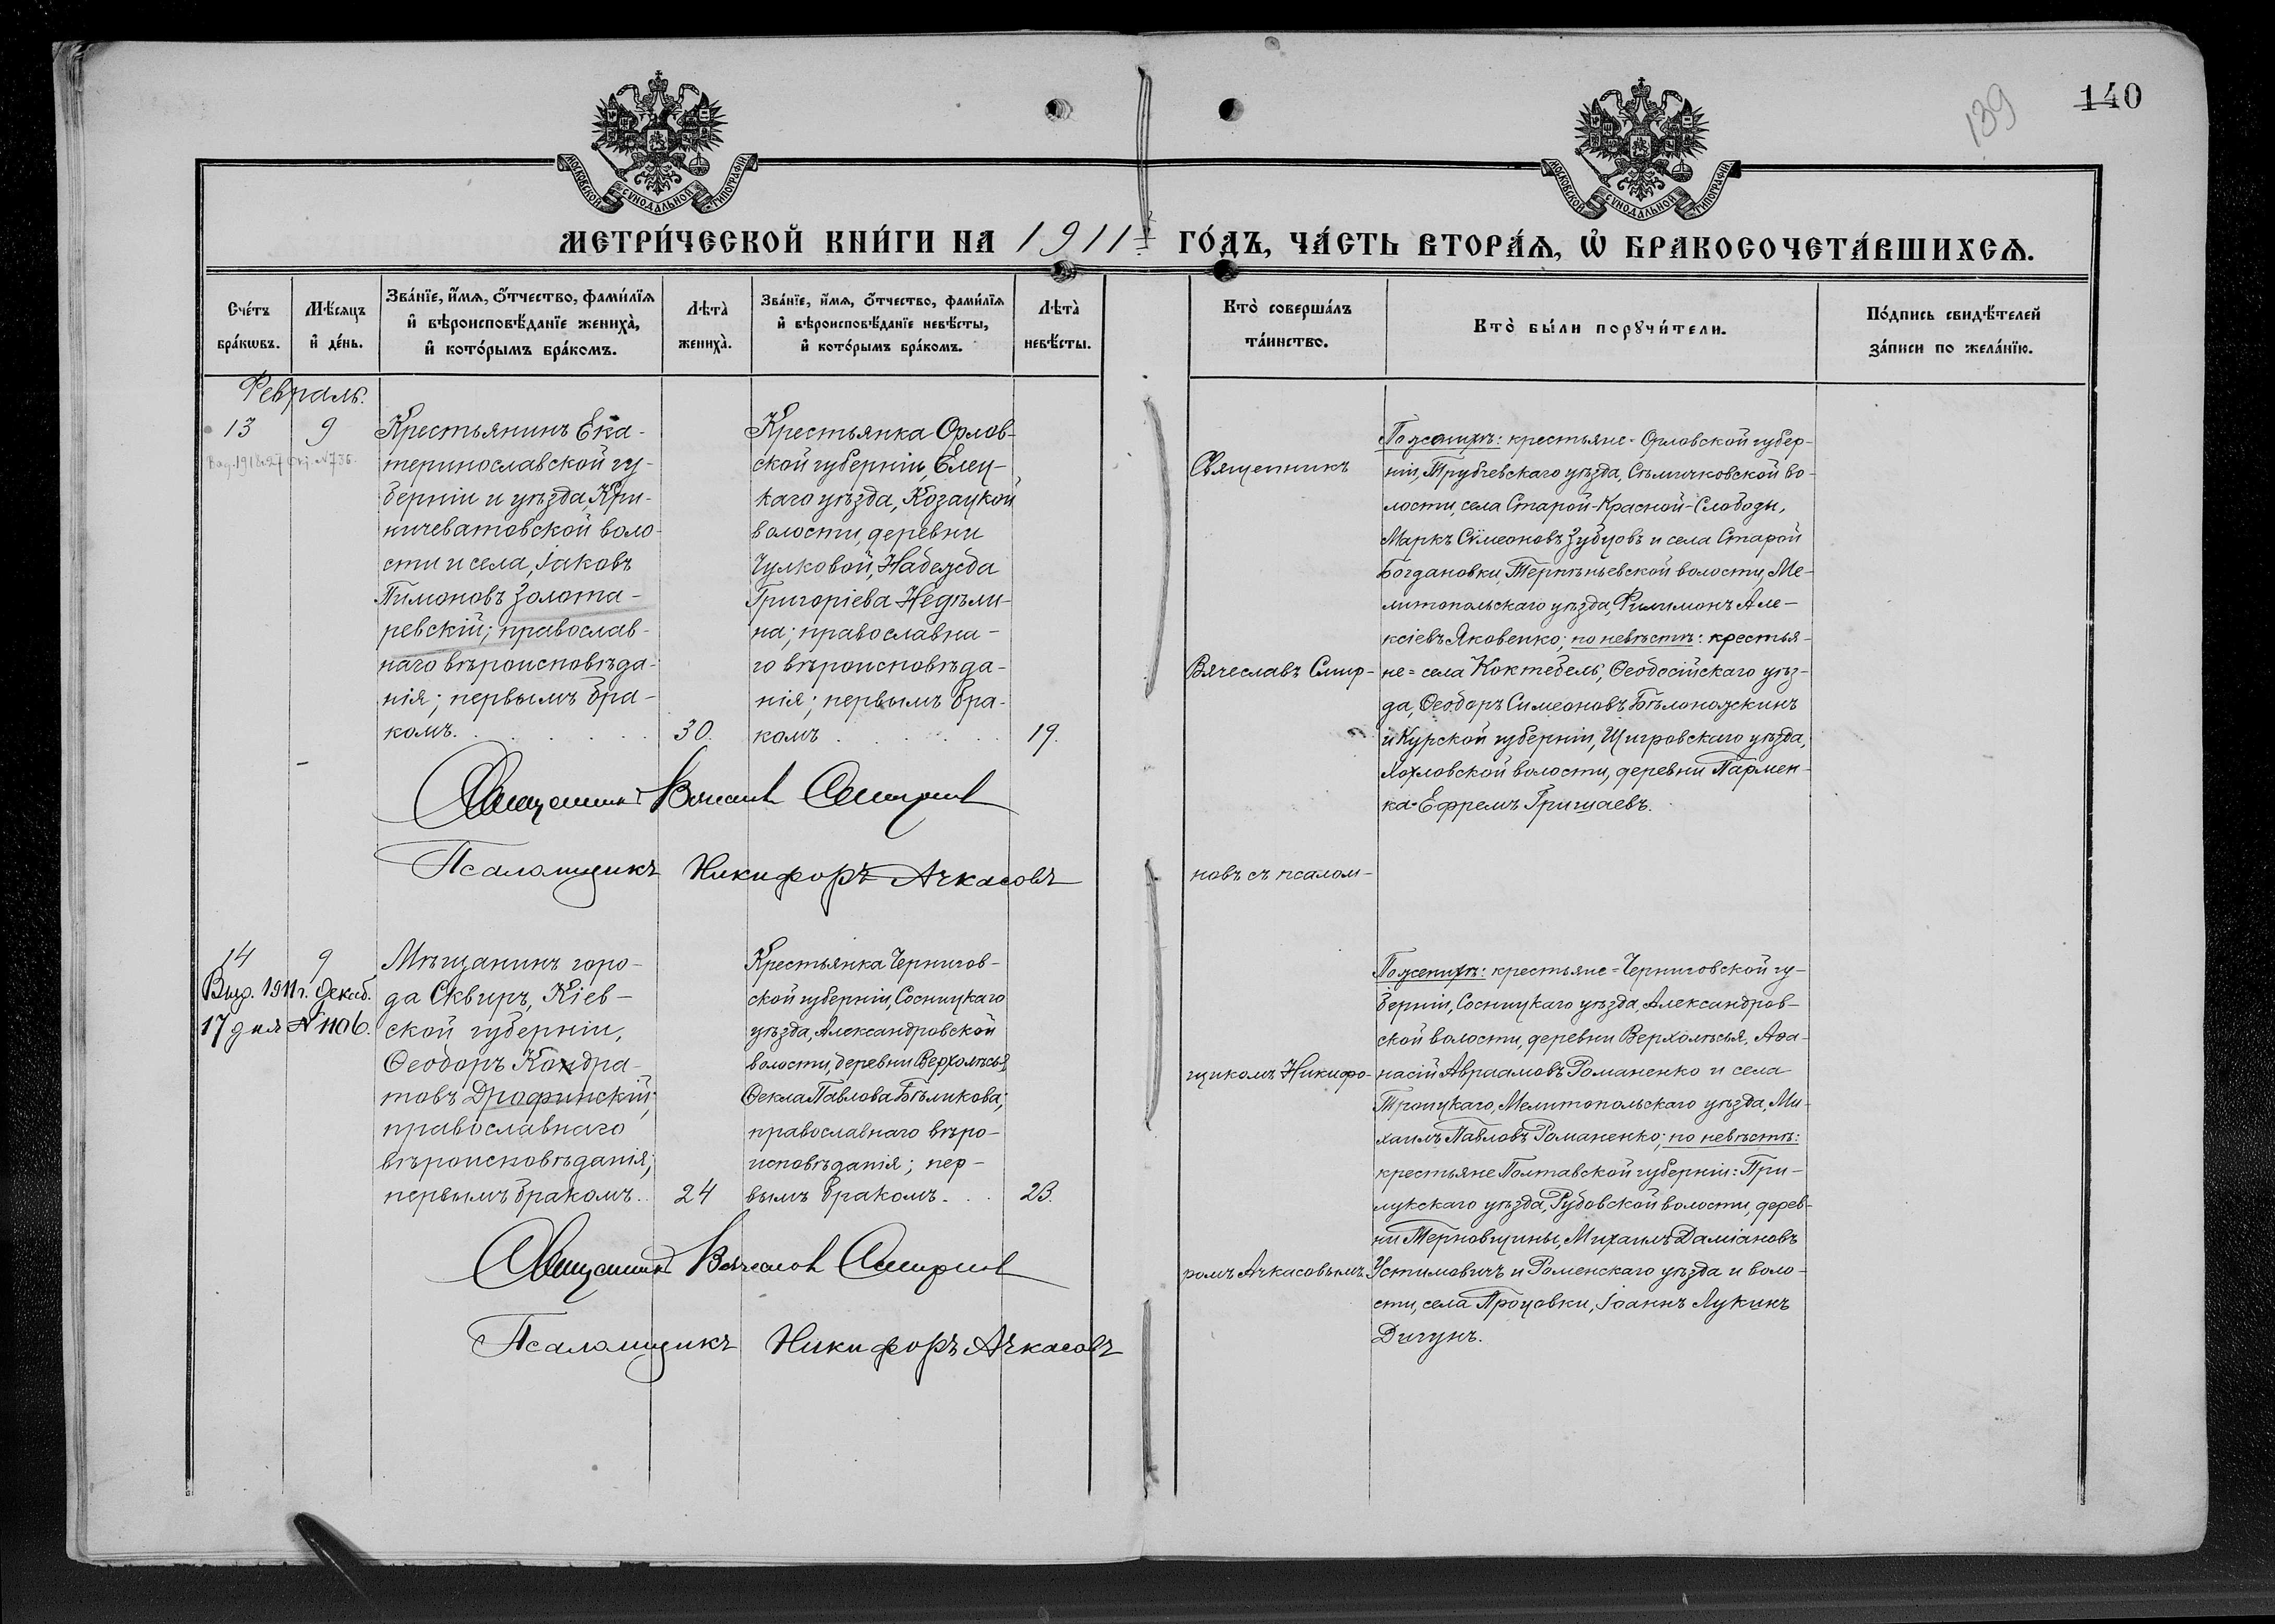 139
140
МОСКОВСКОЙ СУНОДАЛЬНОЙ ТИПОГРАФІИ
МОСКОВСКОЙ СУНОДАЛЬНОЙ ТИПОГРАФІИ
МЕТРИ́ЧЕСКОЙ КНИ́ГИ НА 1911 ГО́ДЪ, ЧА́СТЬ ВТОРА́Ѧ, Ѡ҆ БРАКОСОЧЕТА́ВШИХСѦ.
Сче́тъ
бра́кѡвъ.
Мѣ́сѧцъ
и҆ де́нь.
Зва́нїе, и҆́мѧ, ѻ҆́тчество, фами́лїѧ
и҆ вѣроисповѣ́данїе жениха̀,
и҆ кото́рымъ бра́комъ.
Лѣта̀
жениха̀.
Зва́нїе, и҆́мѧ, ѻ҆́тчество, фами́лїѧ
и҆ вѣроисповѣ́данїе невѣ́сты,
и҆ кото́рымъ бра́комъ.
Лѣта̀
невѣ́сты.
Кто̀ соверша́лъ
та́инство.
Кто̀ бы́ли порꙋчи́тели.
По́дпись свидѣ́телей
за́писи по жела́нїю.
Февраль.
13
9
Крестьянинъ Ека-
теринославской гу-
берніи и уѣзда, Кри-
ничеватовской воло-
сти и села, Іаковъ
Пимоновъ Золота-
ревскій; православ-
наго вѣроисповѣда-
нія; первымъ бра-
комъ.
30.
Крестьянка Орлов-
ской губерніи, Елец-
каго уѣзда, Козацкой
волости, деревни
Чулковой, Надежда
Григоріева Недѣли-
на; православна-
го вѣроисповѣда-
нія; первымъ бра-
комъ
19.
Священникъ Вячеслав Смирнов
Псаломщикъ Никифоръ Ачкасовъ
Священникъ
Вячеславъ Смир-
новъ съ псалом-
щикомъ Никифо-
ромъ Ачкасовымъ.
По женихѣ: крестьяне = Орловской губер-
ніи, Трубчевскаго уѣзда, Сѣмячковской во-
лости, села Старой-Красной-Слободы,
Маркъ Сѵмеоновъ Зубцовъ и села Старой
Богдановки, Терпѣньевской волости, Ме-
литопольскаго уѣзда, Филимонъ Але-
ксіевъ Яковенко; по невѣстѣ: крестья-
не = села Коктебель, Ѳеодосійскаго уѣз-
да, Ѳеодоръ Симеоновъ Бѣлоножскинъ
и Курской губерніи, Щигровскаго уѣзда,
Хохловской волости, деревни Пармен-
ка - Ефремъ Гришаевъ.
14
9
Выд. 1911 г. Декаб.
17 дня № 1106.
Мѣщанинъ горо-
да Сквиръ, Кіев-
ской губерніи,
Ѳеодоръ Кондра-
товъ Драфинскій;
православнаго
вѣроисповѣданія;
первымъ бракомъ.
24
Крестьянка Чернигов-
ской губерніи, Сосницкаго
уѣзда, Александровской
волости, деревни Верхолѣсья,
Ѳекла Павлова Бѣликова;
православнаго вѣро-
исповѣданія; пер-
вымъ бракомъ.
23.
Священникъ Вячеслав Смирнов
Псаломщикъ Никифоръ Ачкасовъ
По женихѣ: крестьяне = Черниговской гу-
берніи, Сосницкаго уѣзда, Александров-
ской волости, деревни Верхолѣсья, Аѳа-
насій Авраамовъ Романенко и села
Троицкаго, Мелитопольскаго уѣзда, Ми-
хаилъ Павловъ Романенко; по невѣстѣ:
крестьяне Полтавской губерніи: При-
лукскаго уѣзда, Рудовской волости, дерев-
ни Терновщины, Михаилъ Даміановъ
Устимовичъ и Роменскаго уѣзда и воло-
сти, села Процовки, Іоаннъ Лукинъ
Дигунъ.